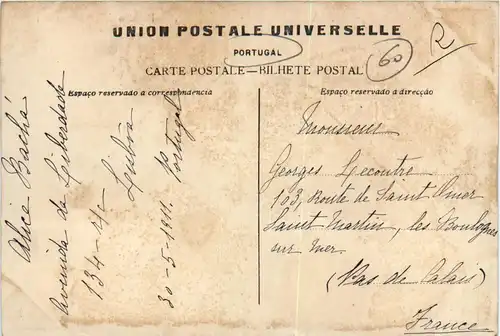 UNION POSTALE UNIVERSELLE
PORTUGAL
CARTE POSTALE—BILHETE POSTAL
60
R
Espaço reservado á correspondencia
Espaço reservado a direcção
Alice Bachá
Avenida da Liberdade
134-r/c Lisbôa
30-5-1911. Portugal
Monsieur
Georges Lecontre
103, Route de Saint Omer
Saint Martin, les Boulogne
sur Mer.
(Pas de Calais)
France